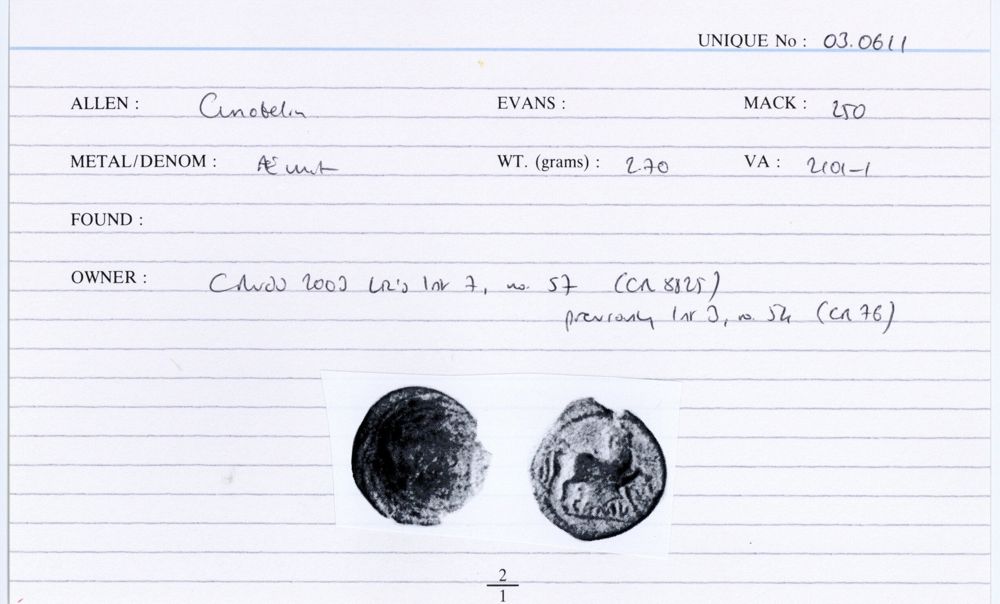 UNIQUE No : 03.0611
ALLEN : Cunobelin EVANS : MACK : 250
METAL/DENOM : Æ unit WT. (grams) : 2.70 VA : 2101-1
FOUND :
OWNER : 2003 list 7, no. 57 (CR 8825)
previously list 3, no. 54 (CR 76)
2
1